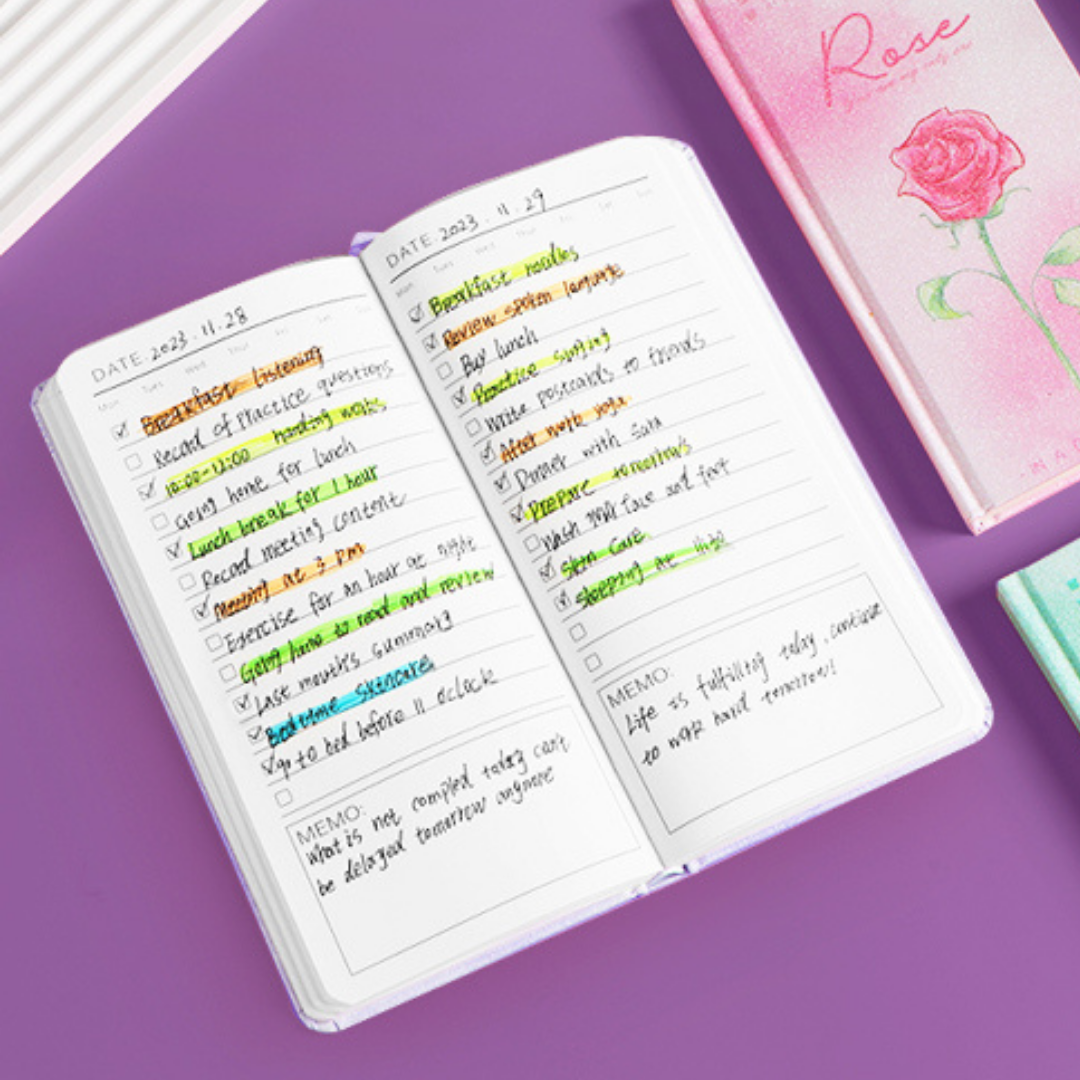 DATE. 2023.11.28
Mon Tues Wed Thur Fri Sat Sun
Breakfast listening
Record of Practice questions
10:00-12:00 handing notes
Going home for lunch
Lunch break for 1 hour
Record meeting content
Meeting at 3 Pm
Exercise for an hour at night
Going home to read and review
Last mouth's summary
Bedtime skincare
go to bed before 11 oclock
MEMO:
What is not compled today can't
be delayed tomorrow anymore
DATE. 2023.11.29
Mon Tues Wed Thur Fri Sat Sun
Breakfast noodles
Review spoken language
Buy lunch
Practice singing
Write postcards to friends
After work yoga
Dinner with Sara
Prepare tomorrow's
Wash your face and feet
Skin Care
Shopping at 11:30
MEMO:
Life is fulfilling today, continue
to work hard tomorrow!
Rose
You are my only one
IN A